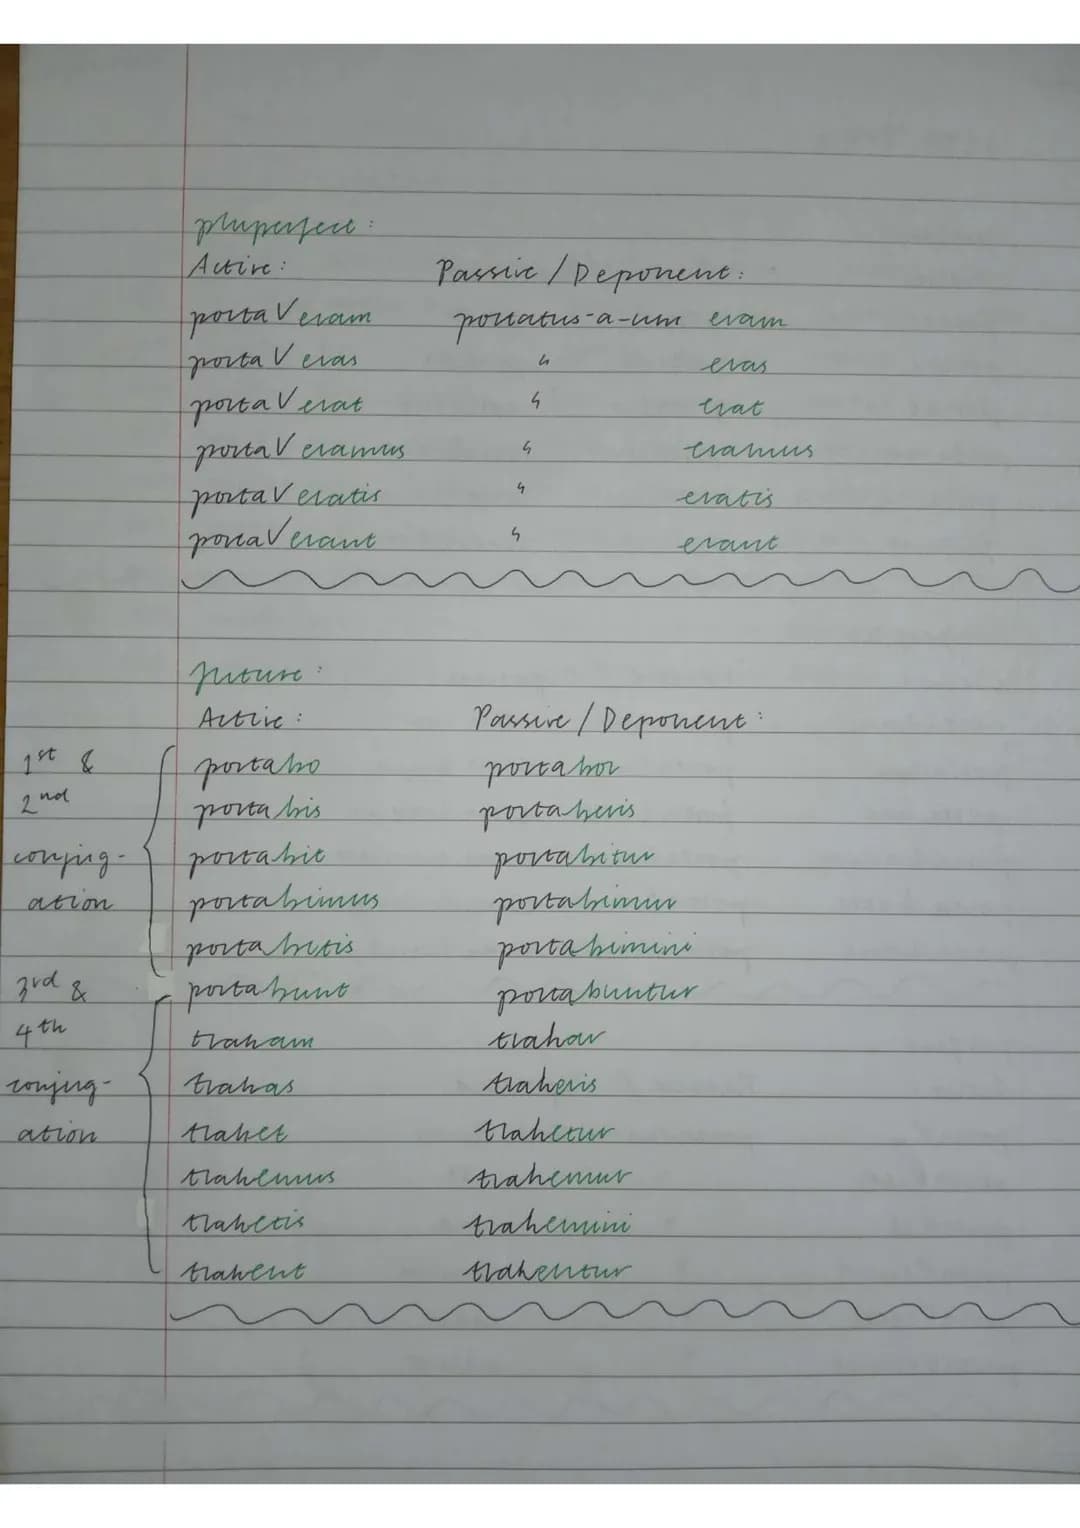 pluperfect:
Active: Passive / Deponent:
portaveram portatus-a-um eram
portaveras " eras
portaverat " erat
portaveramus " eramus
portaveratis " eratis
portaverant " erant
future:
Active: Passive / Deponent:
1st & portabo portabor
2nd portabis portaberis
conjug- portabit portabitur
ation portabimus portabimur
portabitis portabimini
3rd & portabunt portabuntur
4th traham trahar
conjug- trahas traheris
ation trahet trahetur
trahemus trahemur
trahetis trahemini
trahent trahentur